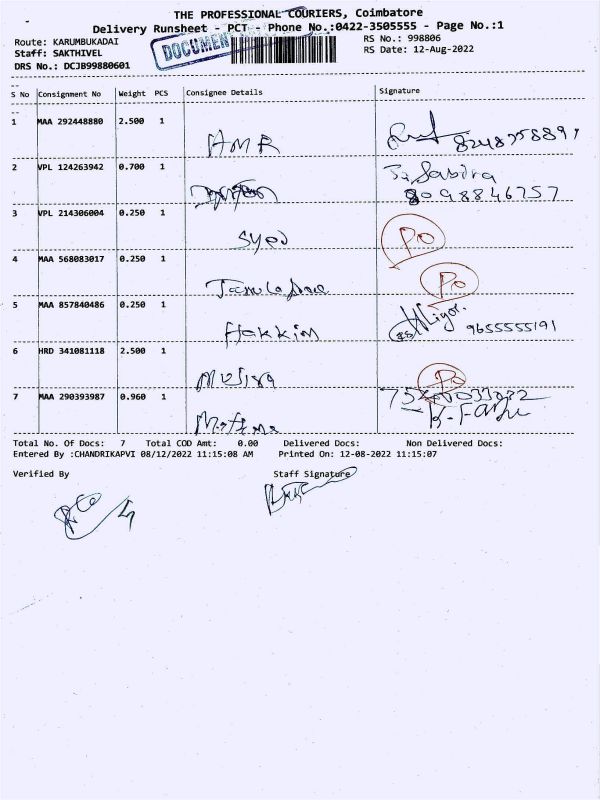 THE PROFESSIONAL COURIERS, Coimbatore
Delivery Runsheet - PCT - Phone No.:0422-3505555 - Page No.:1
Route: KARUMBUKADAI
RS No.: 998806
Staff: SAKTHIVEL
DOCUMENT
RS Date: 12-Aug-2022
DRS No.: DCJB99880601
S No Consignment No Weight PCS Consignee Details Signature
1 MAA 292448880 2.500 1
AMR
2 VPL 124263942 0.700 1
Sabira
8098846757
3 VPL 214306004 0.250 1
Syed PO
4 MAA 568083017 0.250 1
PO
5 MAA 857840486 0.250 1
Hakkim 9655555191
6 HRD 341081118 2.500 1
PO
7 MAA 290393987 0.960 1
Total No. Of Docs: 7 Total COD Amt: 0.00 Delivered Docs: Non Delivered Docs:
Entered By :CHANDRIKAPVI 08/12/2022 11:15:08 AM Printed On: 12-08-2022 11:15:07
Verified By Staff Signature